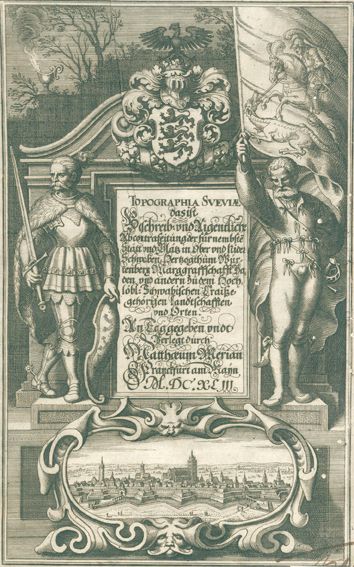 TOPOGRAPHIA SVEVIÆ
das ist
Bschreib: und Aigentliche
Abcontrafeitung der fürnembstē
Stätt und Plätz in Ober und Nider
Schwaben, Hertzogthum Würtenberg
Marggraffschafft Baden
und andern zu dem Hochlöbl:
Schwabischen Craiße
gehörigen Landtschafften
und Orten
An Tag gegeben undt
Verlegt durch
Matthæum Merian
Franckfurt am Mayn
M. DC. XL III.